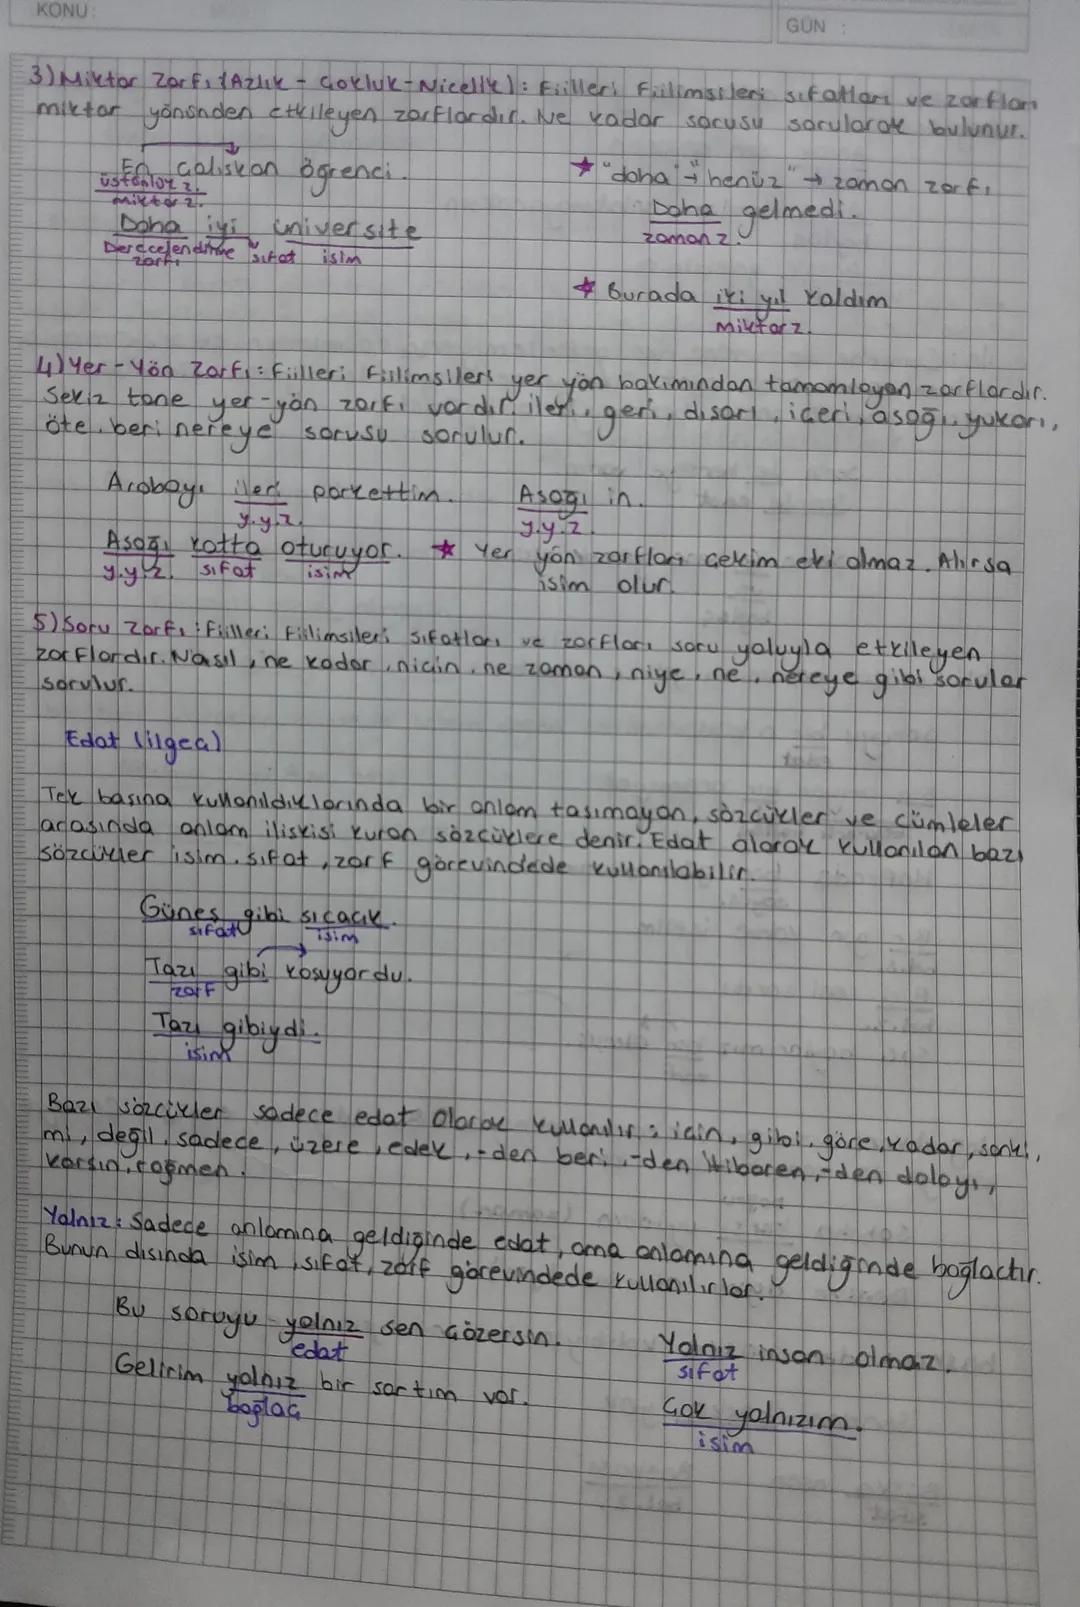 KONU:
GÜN :
3) Miktar Zarfı (Azlık - Çokluk - Nicelik): Fiilleri fiilimsileri sıfatları ve zarfları
miktar yönünden etkileyen zarflardır. Ne kadar sorusu sorularak bulunur.
En çalışkan öğrenci.
üstünlük z.
miktar z.
Daha iyi üniversite
Derecelendirme sıfat isim
zarfı
★ "daha" → "henüz" → zaman zarfı
Daha gelmedi.
zaman z.
★ Burada iki yıl kaldım
Miktar z.
4) Yer - Yön Zarfı: Fiilleri fiilimsileri yer yön bakımından tamamlayan zarflardır.
Sekiz tane yer-yön zarfı vardır. ileri, geri, dışarı, içeri, aşağı, yukarı,
öte, beri nereye sorusu sorulur.
Arabayı ileri parkettim.
y.y.z.
Aşağı in.
y.y.z.
Aşağı katta oturuyor.
y.y.z. sıfat isim
★ Yer yön zarfları çekim eki almaz. Alırsa
isim olur.
5) Soru Zarfı: Fiilleri fiilimsileri sıfatları ve zarfları soru yoluyla etkileyen
zarflardır. Nasıl, ne kadar, niçin, ne zaman, niye, ne, nereye gibi sorular
sorulur.
Edat (ilgeç)
Tek başına kullanıldıklarında bir anlam taşımayan, sözcükler ve cümleler
arasında anlam ilişkisi kuran sözcüklere denir. Edat olarak kullanılan bazı
sözcükler isim, sıfat, zarf görevindede kullanılabilir.
Güneş gibi sıcacık.
sıfat isim
Tazı gibi koşuyordu.
zarf
Tazı gibiydi.
isim
Bazı sözcükler sadece edat olarak kullanılır: için, gibi, göre, kadar, sanki,
mi, değil, sadece, üzere, edek, -den beri, -den itibaren, -den dolayı,
karşın, rağmen.
Yalnız: Sadece anlamına geldiğinde edat, ama anlamına geldiğinde bağlaçtır.
Bunun dışında isim, sıfat, zarf görevindede kullanılırlar.
Bu soruyu yalnız sen çözersin.
edat
Yalnız insan olmaz.
sıfat
Gelirim yalnız bir şartım var.
bağlaç
Çok yalnızım.
isim